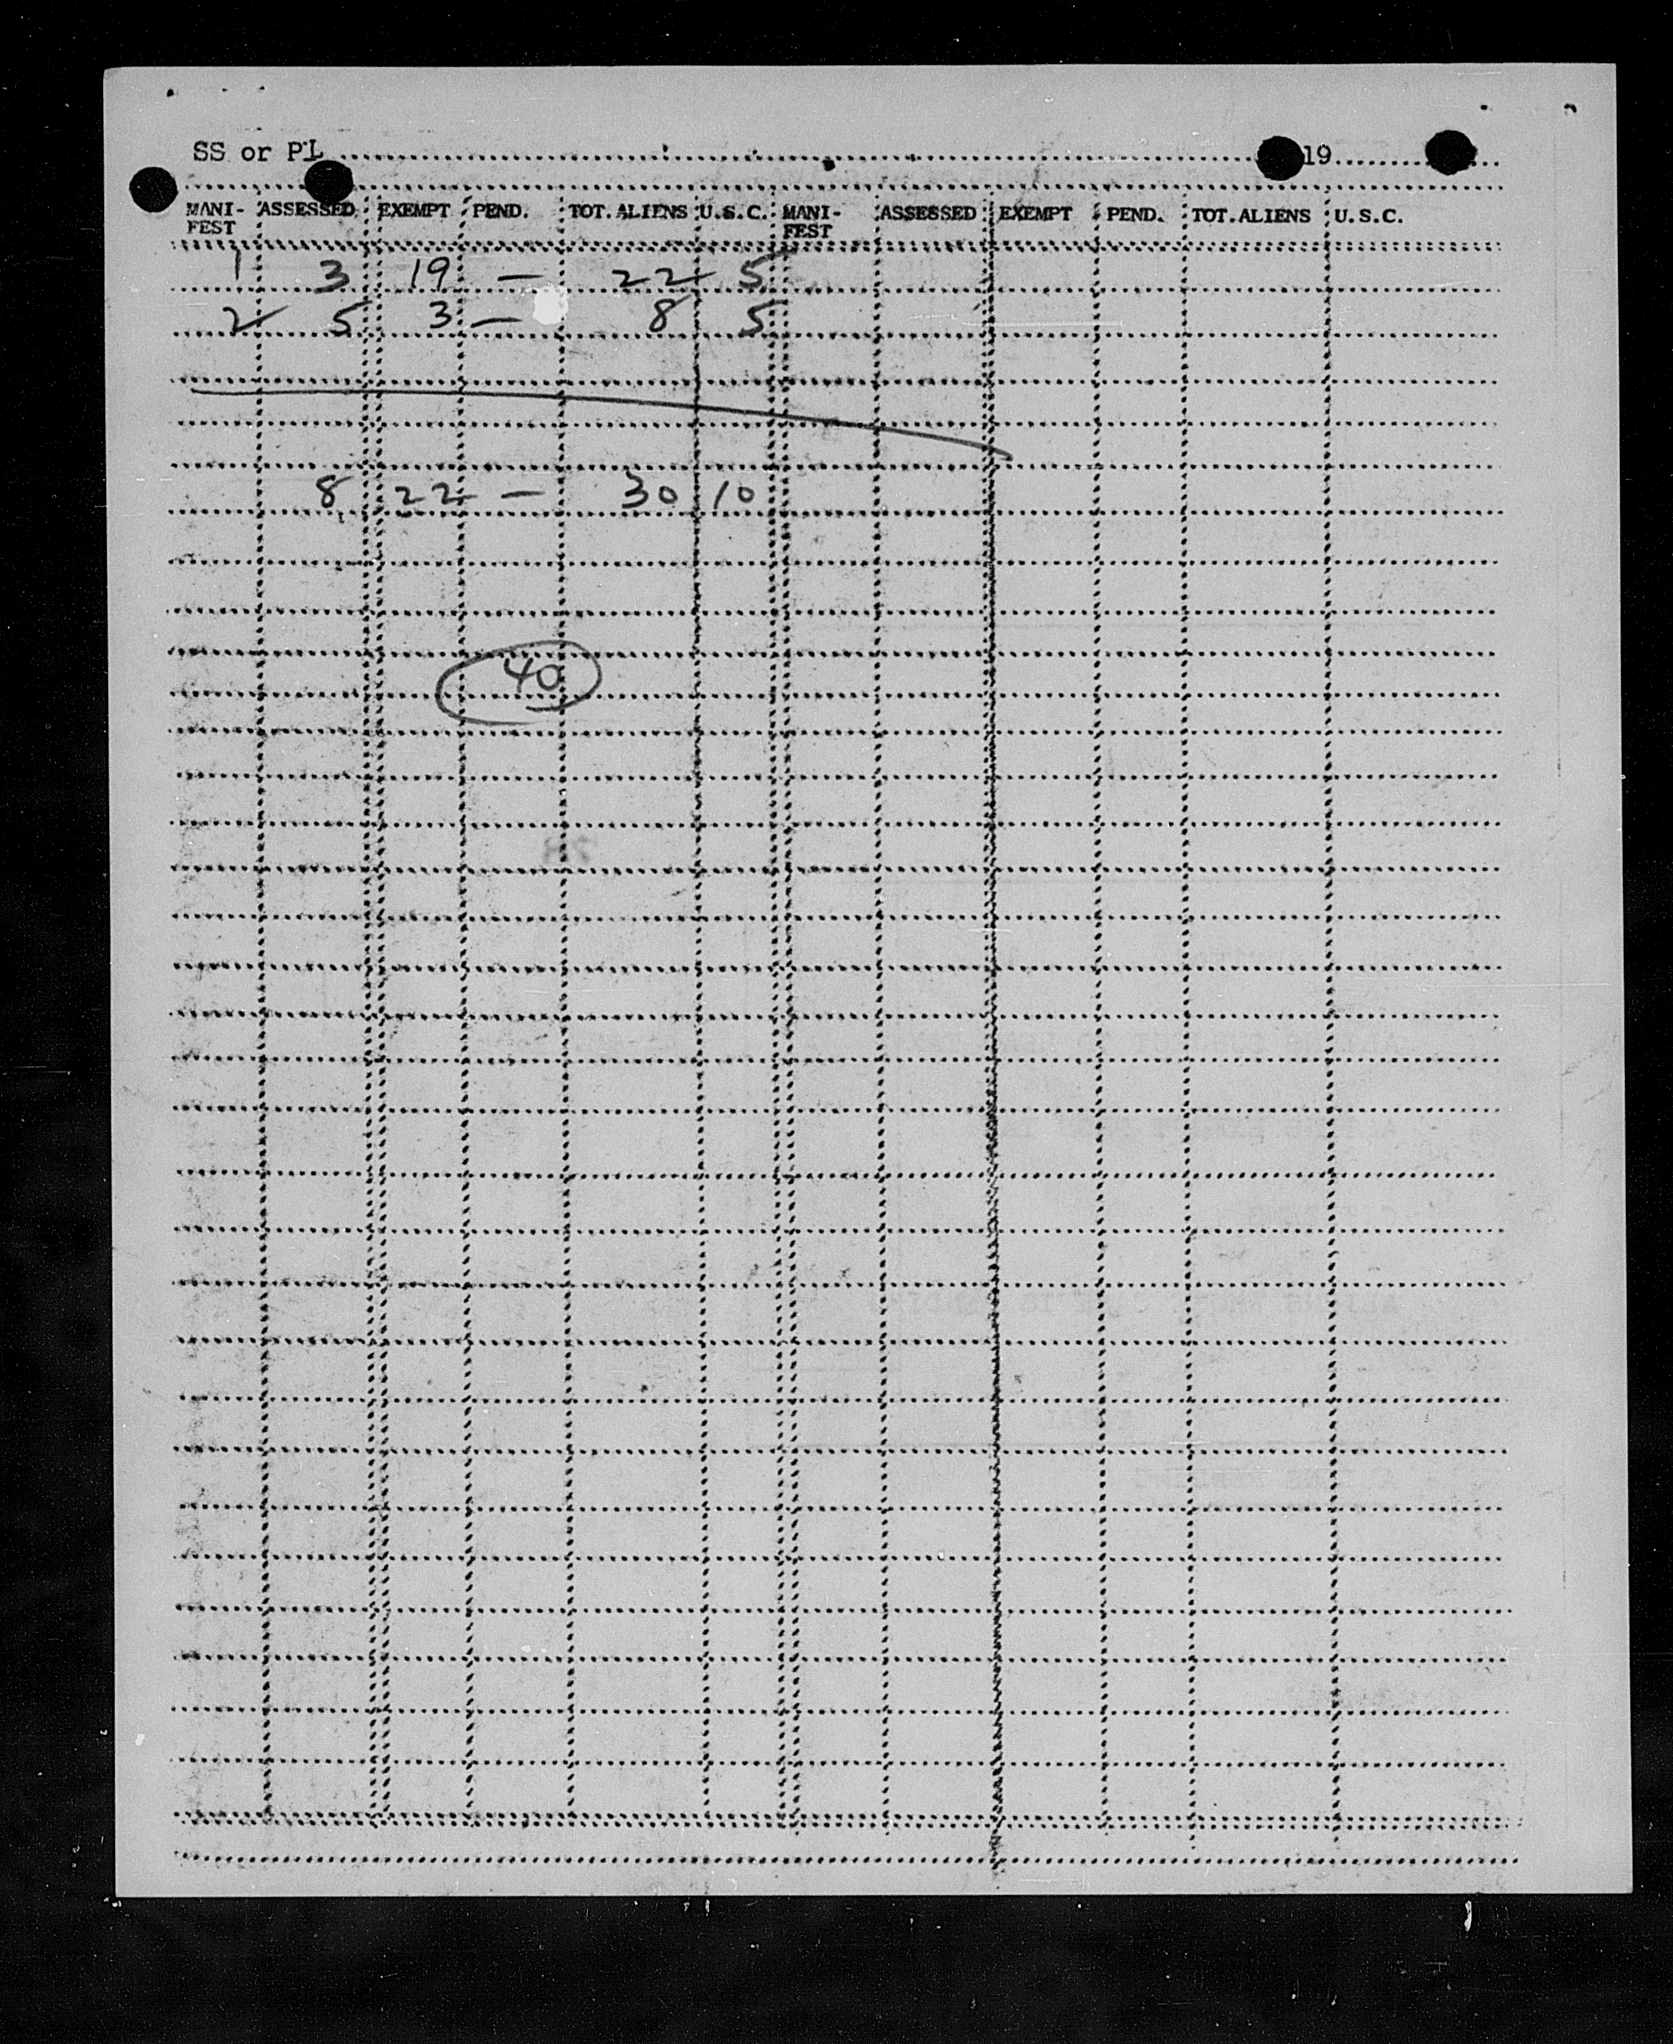 SS or PL 19
MANI-FEST ASSESSED EXEMPT PEND. TOT. ALIENS U.S.C. MANI-FEST ASSESSED EXEMPT PEND. TOT. ALIENS U.S.C.
1 3 19 — 22 5
2 5 3 — 8 5
8 22 — 30 10
40